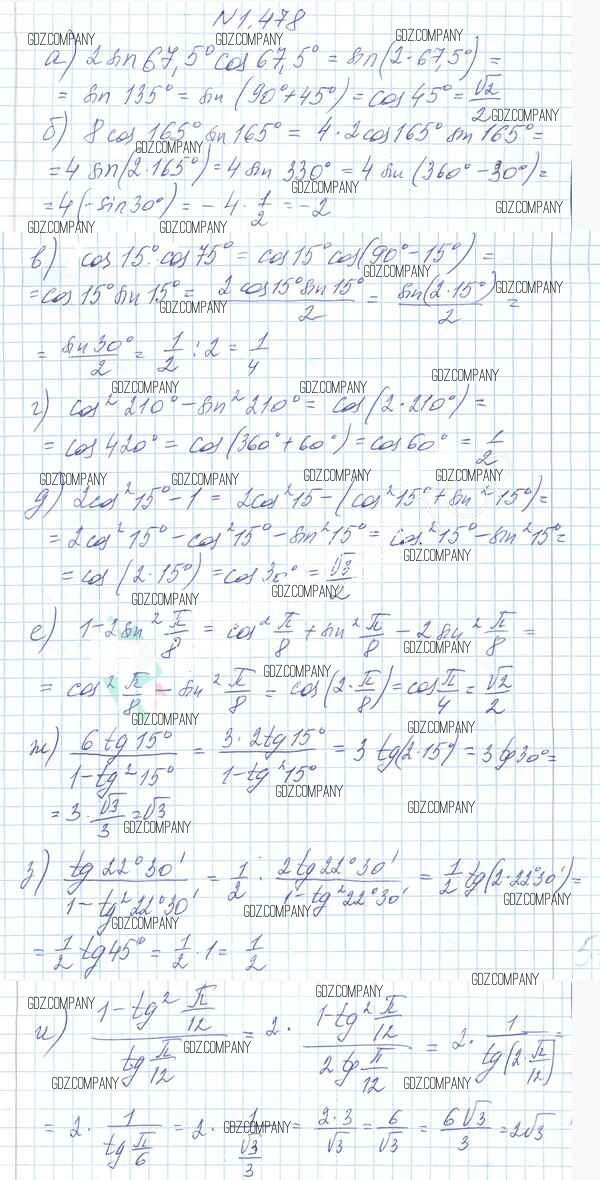 N 1.478
GDZ.COMPANY GDZ.COMPANY GDZ.COMPANY
а) 2 sin 67,5° cos 67,5° = sin(2·67,5°) =
= sin 135° = sin (90°+45°) = cos 45° = √2/2
GDZ.COMPANY
б) 8 cos 165° sin 165° = 4·2cos165° sin 165° =
GDZ.COMPANY
= 4 sin(2·165°) = 4 sin 330° = 4 sin (360°-30°) =
GDZ.COMPANY
= 4(-sin30°) = -4·1/2 = -2
GDZ.COMPANY
GDZ.COMPANY GDZ.COMPANY
в) cos 15°·cos 75° = cos 15° cos(90°-15°) =
GDZ.COMPANY
= cos 15° sin 15° = 2cos15°sin15°/2 = sin(2·15°)/2 =
GDZ.COMPANY
GDZ.COMPANY
= sin30°/2 = 1/2 : 2 = 1/4
GDZ.COMPANY GDZ.COMPANY GDZ.COMPANY
г) cos² 210° - sin² 210° = cos(2·210°) =
= cos 420° = cos(360°+60°) = cos60° = 1/2
GDZ.COMPANY GDZ.COMPANY GDZ.COMPANY GDZ.COMPANY
д) 2cos²15°-1 = 2cos²15-(cos²15°+sin²15°)=
= 2cos²15°-cos²15°-sin²15° = cos²15°-sin²15° =
GDZ.COMPANY
= cos (2·15°) = cos30° = √3/2
GDZ.COMPANY GDZ.COMPANY
е) 1-2sin² π/8 = cos² π/8 + sin² π/8 - 2sin² π/8 =
GDZ.COMPANY
GDZ.COMPANY
= cos² π/8 - sin² π/8 = cos(2·π/8) = cos π/4 = √2/2
GDZ.COMPANY GDZ.COMPANY
ж) 6tg15°/1-tg²15° = 3·2tg15°/1-tg²15° = 3tg(2·15°) = 3tg30° =
GDZ.COMPANY
= 3·√3/3 = √3
GDZ.COMPANY
GDZ.COMPANY
з) tg22°30'/1-tg²22°30' = 1/2 · 2tg22°30'/1-tg²22°30' = 1/2 tg(2·22°30') =
GDZ.COMPANY
GDZ.COMPANY GDZ.COMPANY
= 1/2 tg45° = 1/2 · 1 = 1/2
GDZ.COMPANY
GDZ.COMPANY GDZ.COMPANY
и) 1-tg² π/12 / tg π/12 = 2· 1-tg² π/12 / 2tg π/12 = 2· 1/tg(2·π/12) =
GDZ.COMPANY
GDZ.COMPANY GDZ.COMPANY
= 2· 1/tg π/6 = 2· 1/√3/3 = 2·3/√3 = 6/√3 = 6√3/3 = 2√3
GDZ.COMPANY